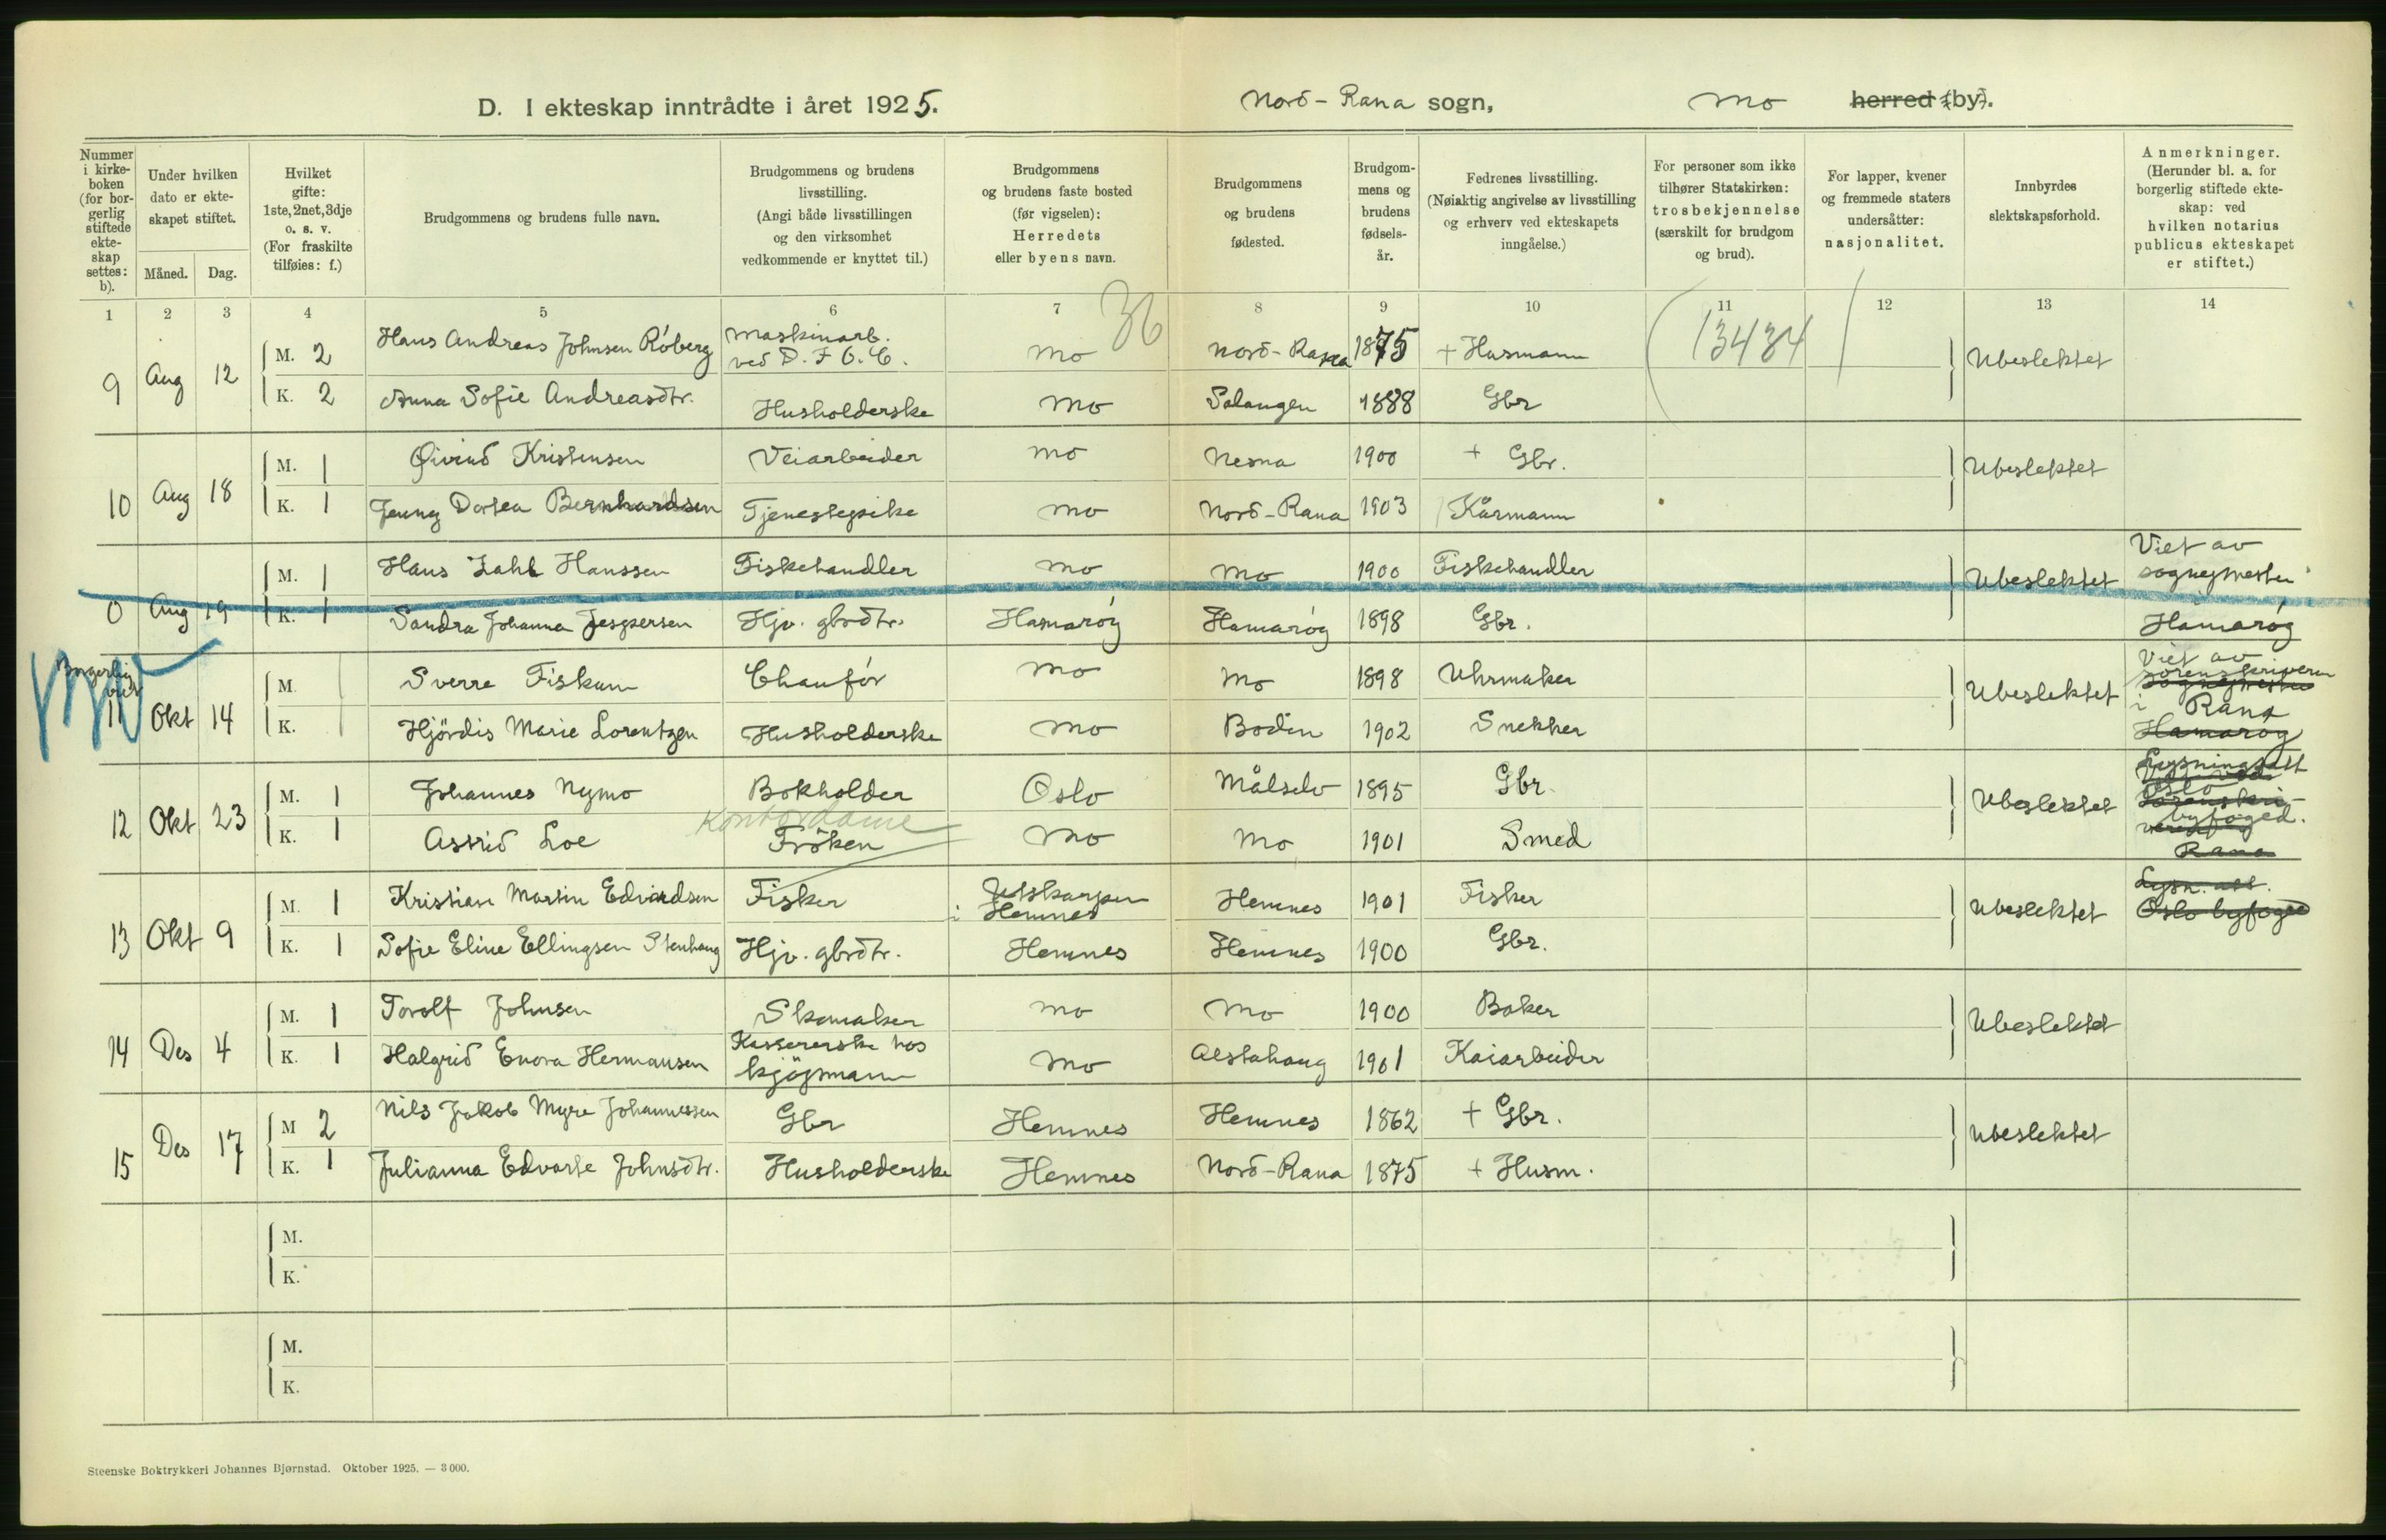 D. I ekteskap inntrådte i året 1925.
Nord-Rana sogn, Mo herred (by).
Nummer i kirkeboken (for borgerlig stiftede ekteskap settes: b).
Under hvilken dato er ekteskapet stiftet.
Måned. Dag.
Hvilket gifte: 1ste, 2net, 3dje o. s. v. (For fraskilte tilføies: f.)
Brudgommens og brudens fulle navn.
Brudgommens og brudens livsstilling. (Angi både livsstillingen og den virksomhet vedkommende er knyttet til.)
Brudgommens og brudens faste bosted (før vigselen): Herredets eller byens navn.
Brudgommens og brudens fødested.
Brudgommens og brudens fødselsår.
Fedrenes livsstilling. (Nøiaktig angivelse av livsstilling og erhverv ved ekteskapets inngåelse.)
For personer som ikke tilhører Statskirken: trosbekjennelse (særskilt for brudgom og brud).
For lapper, kvener og fremmede staters undersåtter: nasjonalitet.
Innbyrdes slektskapsforhold.
Anmerkninger. (Herunder bl. a. for borgerlig stiftede ekteskap: ved hvilken notarius publicus ekteskapet er stiftet.)
1 2 3 4 5 6 7 8 9 10 11 12 13 14
36
13434
9 Aug 12 M. 2 Hans Andreas Johnsen Röberg Maskinarb. ved D. F. O. C. Mo Nord-Rana 1875 + Husmann Ubeslektet
K. 2 Anna Sofie Andreasdtr. Husholderske Mo Salangen 1888 Gbr
10 Aug 18 M. 1 Øivind Kristensen Veiarbeider Mo Nesna 1900 + Gbr. Ubeslektet
K. 1 Jenny Dortea Bernhardsen Tjenestepike Mo Nord-Rana 1903 Kårmann
0 Aug 19 M. 1 Hans Zahl Hanssen Fiskehandler Mo Mo 1900 Fiskehandler Ubeslektet Viet av sognepresten
K. 1 Sandra Johanna Jespersen Hjv. gbrdtr. Hamaröy Hamaröy 1898 Gbr. i Hamaröy
Borgerlig viet
11 Okt 14 M. 1 Sverre Fiskum Chauför Mo Mo 1898 Uhrmaker Ubeslektet Viet av sorenskriveren sognepresten
K. 1 Hjördis Marie Lorentzen Husholderske Mo Bodin 1902 Snekker i Rana Hamaröy
12 Okt 23 M. 1 Johannes Nymo Bokholder Oslo Målselv 1895 Gbr. Ubeslektet Lysningsatt Oslo byfoged.
K. 1 Astrid Loe Kontordame Fröken Mo Mo 1901 Smed Rana
13 Okt 9 M. 1 Kristian Martin Edvardsen Fisker Utskarpen i Hemnes Hemnes 1901 Fisker Ubeslektet Lysn. att. Oslo byfoged
K. 1 Sofie Eline Ellingsen Stenhaug Hjv. gbrdtr. Hemnes Hemnes 1900 Gbr.
14 Des 4 M. 1 Torolf Johnsen Skomaker Mo Mo 1900 Baker Ubeslektet
K. 1 Halgrid Enora Hermansen Kassererske hos kjöpmann Mo Alstahaug 1901 Kaiarbeider
15 Des 17 M 2 Nils Jakob Myre Johannessen Gbr Hemnes Hemnes 1862 + Gbr. Ubeslektet
K. 1 Julianna Edvarte Johnsdtr. Husholderske Hemnes Nord-Rana 1875 + Husm.
M.
K.
M.
K.
Steenske Boktrykkeri Johannes Bjørnstad. Oktober 1925. — 3000.